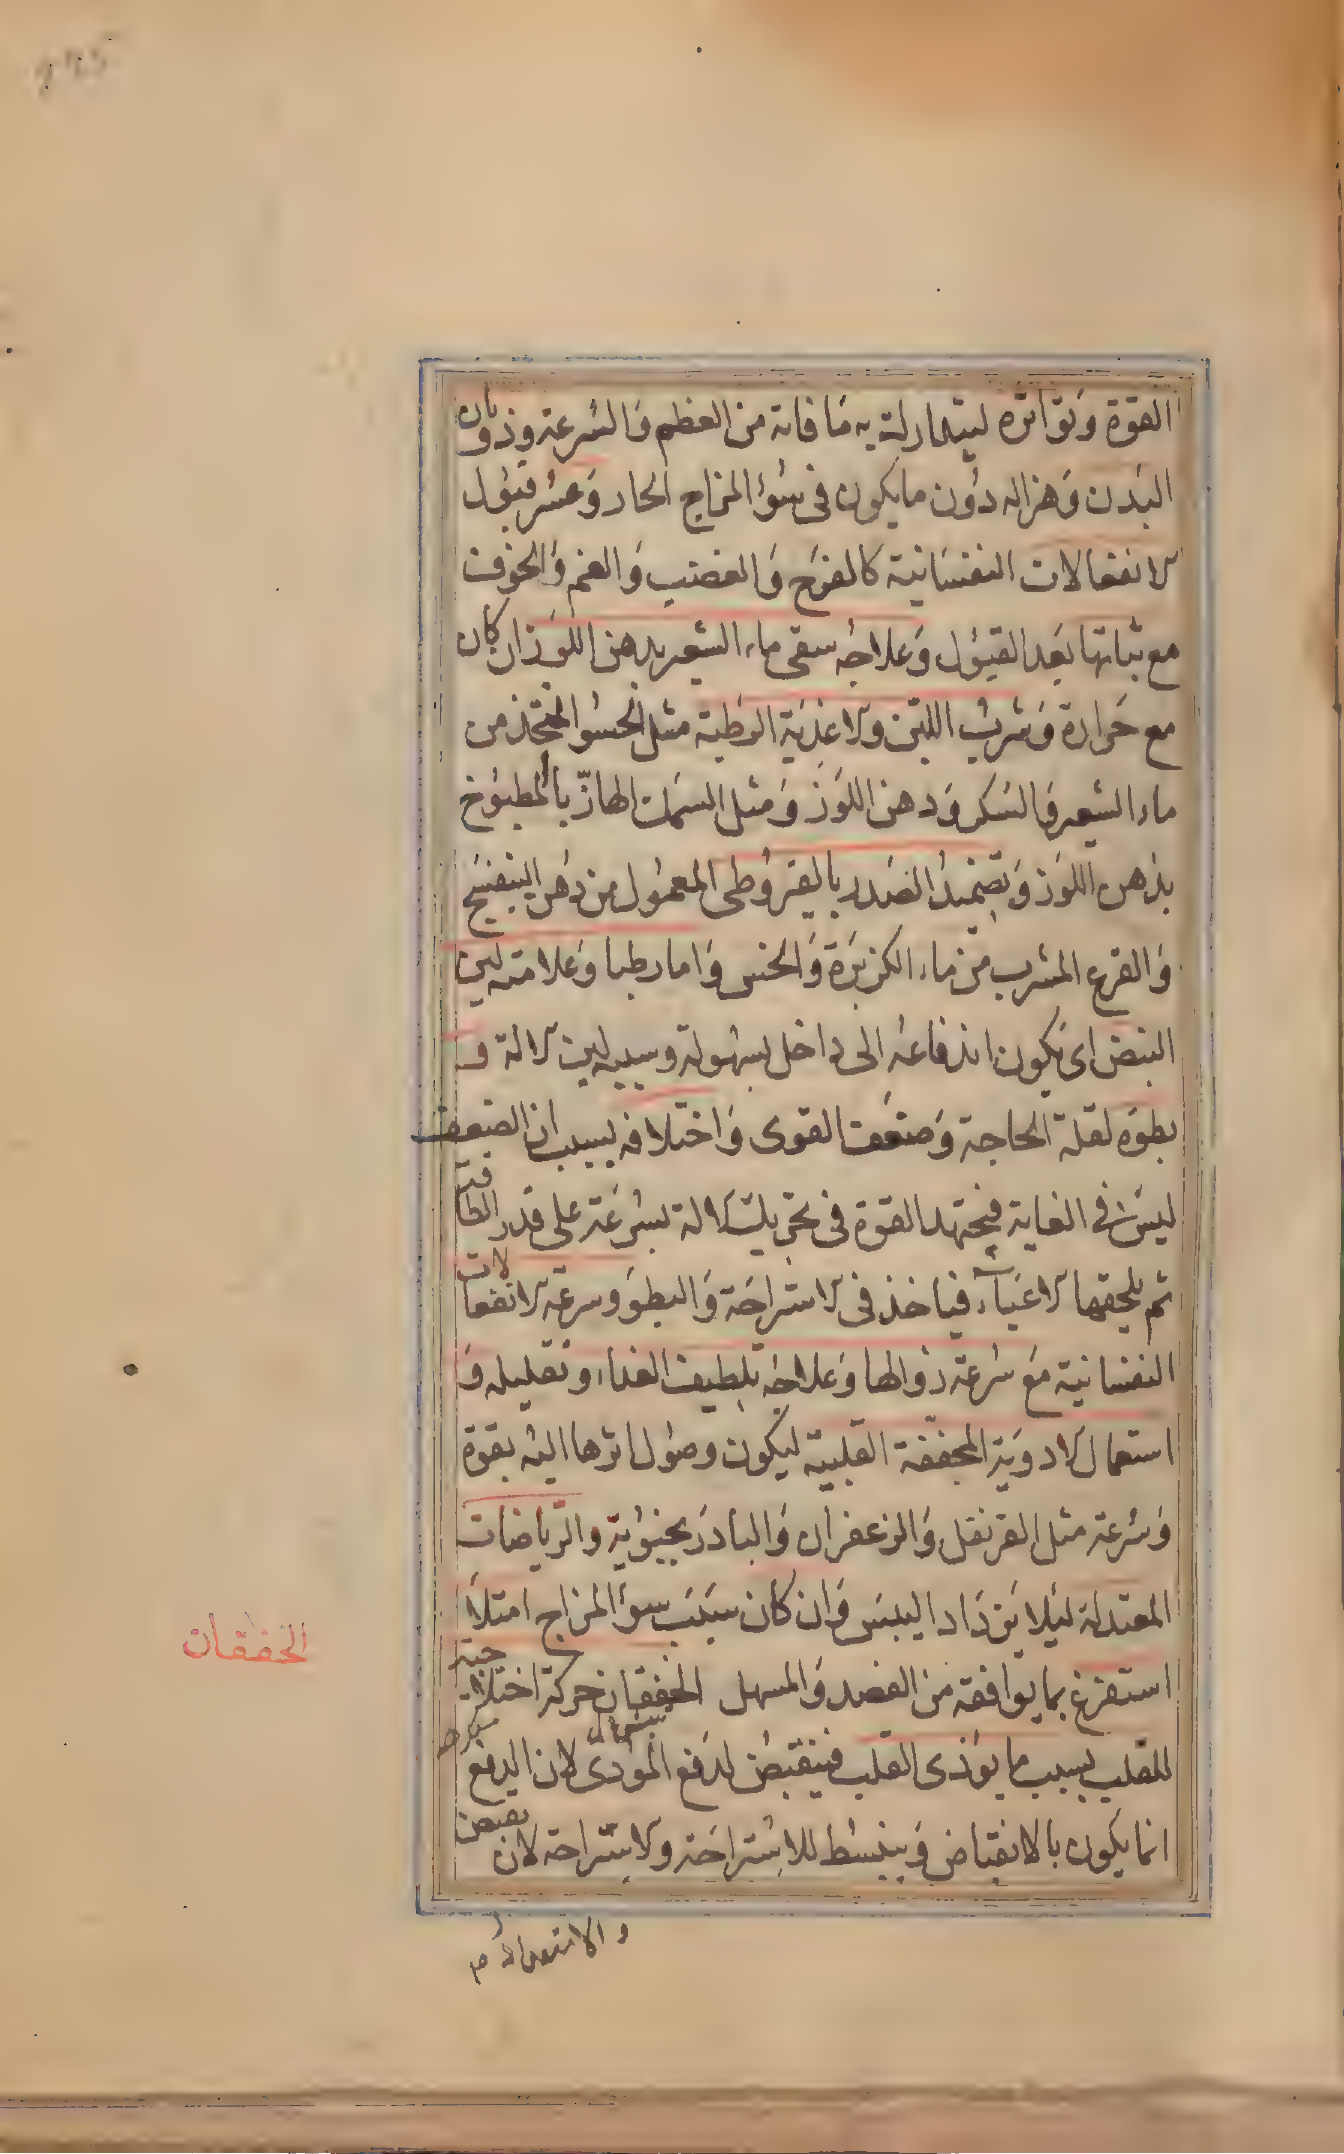 القوة وتواتره ليتدارك به ما فاته من العظم والسرعة وذوبان
البدن وهزاله دون ما يكون في سوء المزاج الحار وعسر قبول
الانفعالات النفسانية كالفرح والغضب والغم والخوف
مع ثباتها بعد القبول وعلاجه سقى ماء الشعير بدهن اللوز ان كان
مع حرارة وشرب اللبن والاغذية الرطبة مثل الحسو المتخذ من
ماء الشعير والسكر ودهن اللوز ومثل السمك الهازبا المطبوخ
بدهن اللوز وتضميد الصدر بالقيروطى المعمول من دهن البنفسج
والقرع المشرب من ماء الكزبرة والخس واما رطبا وعلامته لين
النبض اى يكون اندفاعه الى داخل بسهولة وسببه لين الالة و
بطؤه لقلة الحاجة وضعف القوى واختلافه بسبب ان الضعف
ليس في الغاية فيجتهد القوة في تحريك الالة بسرعة على قدر الطاقة
ثم يلحقها الاعياء فياخذ في الاستراحة والبطؤ وسرعة الانفعالات
النفسانية مع سرعة زوالها وعلاجه تلطيف الغذاء وتقليله و
استعمال الادوية المجففة القلبية ليكون وصول اثرها اليه بقوة
وسرعة مثل القرنفل والزعفران والبادرنجبوية والرياضات
المعتدلة ليلا يزداد اليبس وان كان سبب سوء المزاج امتلاء
استفرغ بما يوافقه من الفصد والمسهل الخفقان حركة اختلاجية
للقلب بسبب ما يؤذى القلب فينقبض لدفع الموذى لان الدفع
انما يكون بالانقباض وينبسط للاستراحة والاستراحة لان
الخفقان